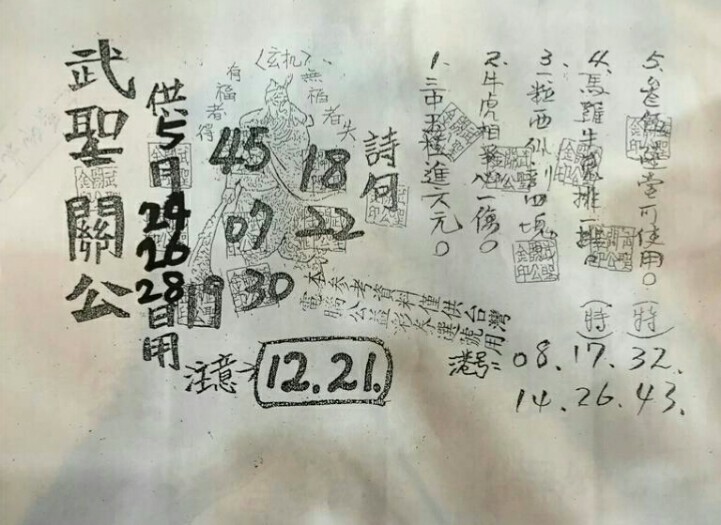 武聖關公
供5月24 26 28日用
〈玄机〉
有福者得
無福者失
45 18
07 22
19 30
詩句
1. 三中五 進六元。
2. 牛虎相 一傷。
3. 一粒西 四塊
4. 馬羅牛 排一排。(特)
5. 堂可使用。(特)
本參考資料僅供台灣
電腦公益彩券選號用
注意 12.21.
港号: 08.17.32.
14.26.43.
武聖關公金印